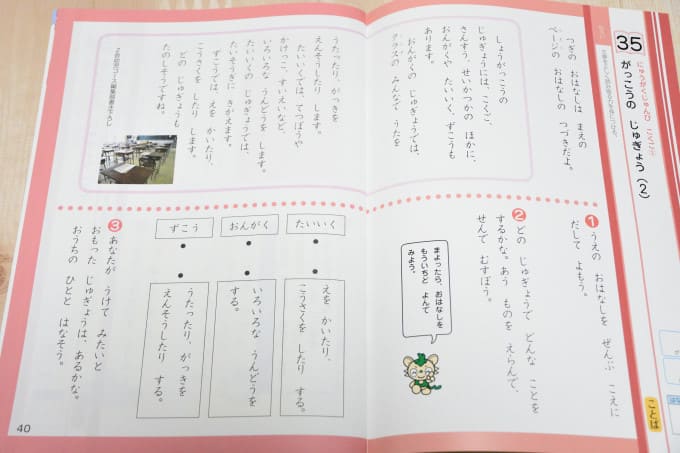 35
にゅうがくじゅんび こくご
がっこうの じゅぎょう(2)
つぎの おはなしは まえの
ページの おはなしの つづきだよ。
しょうがっこうの
じゅぎょうには、こくご、
さんすう、せいかつかの ほかに、
おんがくや たいいく、ずこうも
あります。
おんがくの じゅぎょうでは、
クラスの みんなで うたを
うたったり、がっきを
えんそうしたり します。
たいいくでは、てつぼうや
かけっこ、すいえいなど、
いろいろな うんどうを します。
たいいくの じゅぎょうでは、
たいそうぎに きがえます。
ずこうでは、えを かいたり、
こうさくを したり します。
どの じゅぎょうも
たのしそうですね。
Z会幼児コース編集部書き下ろし
1 うえの おはなしを ぜんぶ こえに
だして よもう。
2 どの じゅぎょうで どんな ことを
するかな。あう ものを えらんで、
せんで むすぼう。
まよったら、おはなしを
もういちど よんで
みよう。
たいいく
おんがく
ずこう
えを かいたり、
こうさくを したり する。
いろいろな うんどうを
する。
うたったり、がっきを
えんそうしたり する。
3 あなたが うけて みたいと
おもった じゅぎょうは、あるかな。
おうちの ひとと はなそう。
40
ことば